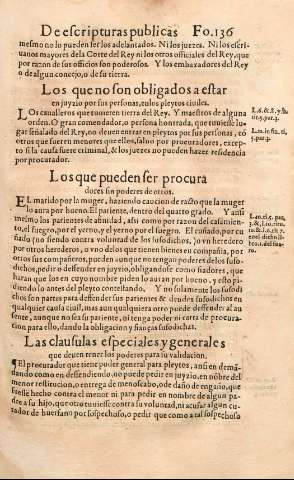 De escripturas publicas Fo.136
mesmo no lo pueden ser los adelantados. Ni los juezes. Ni los escri-
uanos mayores dela Corte del Rey ni los otros officiales del Rey, que
por razon de sus officios son poderosos. Y los embaxadores del Rey
o de algun conejo, o de su tierra.
Los que no son obligados a estar
en juyzio por sus personas, en los pleytos ciuiles.
Los caualleros que tuuieren tierra del Rey. Y maestros de alguna
orden. O gran comendador, o persona honrrada, que tuuiesse lu-
gar señalado del Rey, no deuen entrar en pleytos por sus personas, cō
otros que fueren menores que ellos, saluo por procuradores, excep-
to si la causa fuere criminal, & los juezes no pueden hazer residencia
por procurador.
Los que pueden ser procura
dores sin poderes de otros.
El marido por la muger, haziendo caucion de racto que la muger
lo aura por bueno. El pariente, dentro del quarto grado. Y ansi
mesmo los parientes de afinidad, assi como por razon del casamien-
to, el suegro, por el yerno, y el yerno por el suegro. El cuñado, por cu
ñado (no siendo contra voluntad de los susodichos, o vn heredero
por otros herederos, o vno delos que tienen bienes en compañia, por
otros sus compañeros, pueden aunque no tengan poderes de los suso-
dichos, pedir o defender en juyzio, obligandose como fiadores, que
haran que los en cuyo nombre piden lo auran por bueno, y esto pi-
diendo lo antes del pleyto contestando. Y no solamente los susodi
chos son partes para deffender sus parientes & deudos susodichos en
qualquier causa ciuil, mas aun qualquiera otro puede deffender al au
sente, aunque no sea su pariente, ni tenga poder ni carta de procura-
cion para ello, dando la obligacion y fianças susodichas.
Las clausulas especiales y generales
que deuen tener los poderes para su validacion.
¶El procurador que tiene poder general para pleytos, ansi en dema-
dando como en deffendiendo, no puede pedir en juyzio, en nōbre del
menor restitucion, o entrega de menoscabo, o de daño de engaño, que
fuesse hecho contra el menor ni para pedir en nombre de algun pa-
dre a su hijo, que otro tuuiesse contra su voluntad, ni acusar algun cu-
rador de huerfano por sospechoso, o pedir que como a tal sospechoso